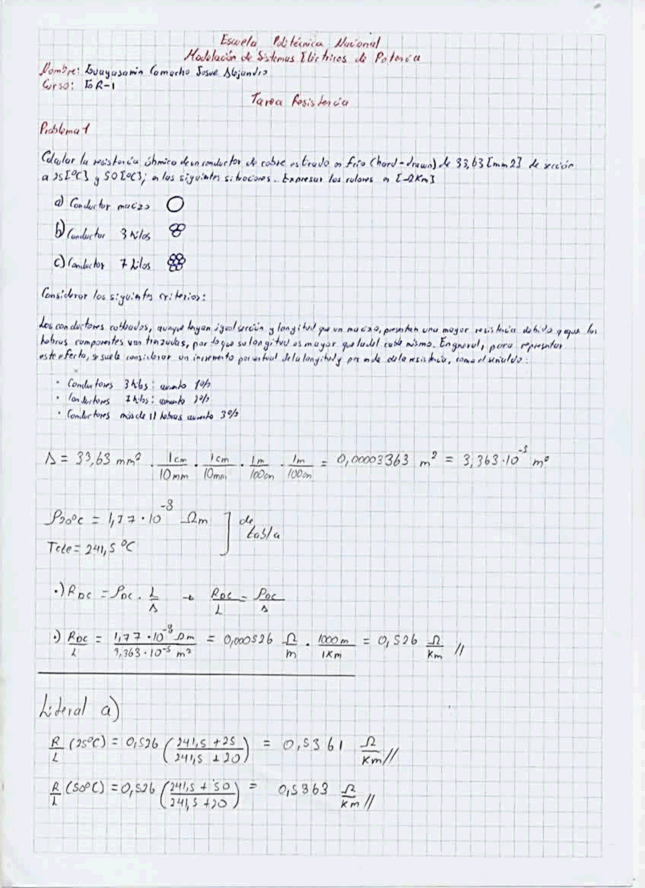 Escuela Politécnica Nacional
Modelación de Sistemas Eléctricos de Potencia
Nombre: Guayasamin Camacho Josue Alejandro
Curso: GR-1
Tarea Resistencia
Problema 1
Calcular la resistencia óhmica de un conductor de cobre estirado en frío (hard-drawn) de 33,63 [mm2] de sección
a 25[°C] y 50[°C]; en las siguientes situaciones. Expresar los valores en [Ω/Km]
a) Conductor macizo
b) Conductor 3 hilos
c) Conductor 7 hilos
Considerar los siguientes criterios:
Los conductores cableados, aunque tengan igual sección y longitud que un macizo, presentan una mayor resistencia debido a que las
hebras componentes van trenzadas, por lo que su longitud es mayor que la del cable mismo. En general, para representar
este efecto, se suele considerar un incremento porcentual de la longitud y por ende de la resistencia, como el señalado:
• Conductores 3 hilos: aumento 1%
• Conductores 7 hilos: aumento 2%
• Conductores más de 11 hebras aumento 3%
A = 33,63 mm² · 1cm/10mm · 1cm/10mm · 1m/100cm · 1m/100cm = 0,00003363 m² = 3,363·10⁻⁵ m²
ρ20°C = 1,77·10⁻⁸ Ωm
Tcte = 241,5 °C ] de tabla
•) RDC = ρDC · L/A → RDC/L = ρDC/A
•) RDC/L = 1,77·10⁻⁸ Ωm / 3,363·10⁻⁵ m² = 0,000526 Ω/m · 1000m/1Km = 0,526 Ω/Km //
Literal a)
R/L (25°C) = 0,526 (241,5 + 25 / 241,5 + 20) = 0,5361 Ω/Km //
R/L (50°C) = 0,526 (241,5 + 50 / 241,5 + 20) = 0,5363 Ω/Km //